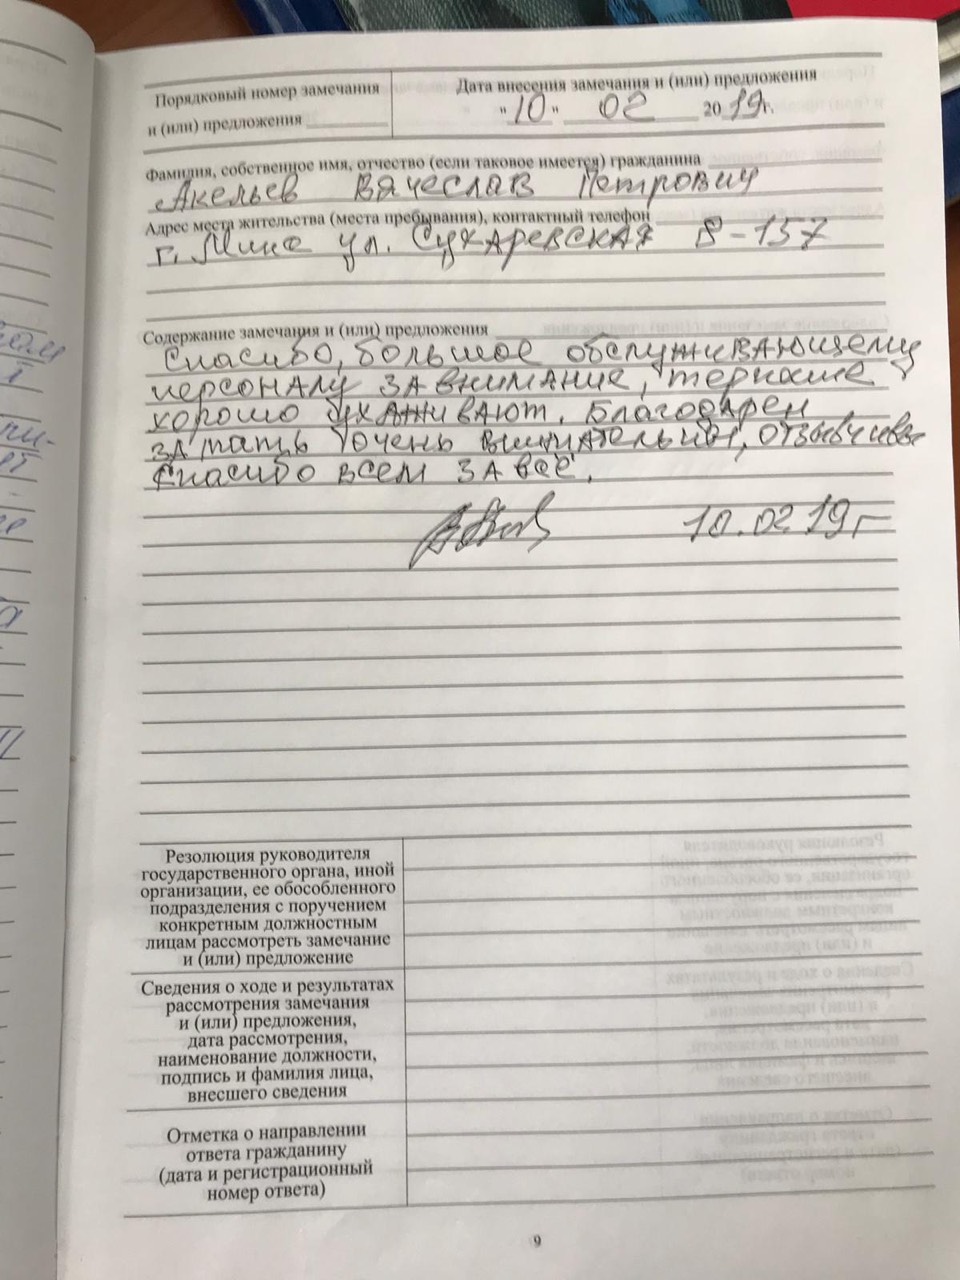 Порядковый номер замечания
и (или) предложения
Дата внесения замечания и (или) предложения
"10" 02 2019г.
Фамилия, собственное имя, отчество (если таковое имеется) гражданина
Акельев Вячеслав Петрович
Адрес места жительства (места пребывания), контактный телефон
г. Минс ул. Сухаревская 8-157
Содержание замечания и (или) предложения
Спасибо, большое обслуживающему
персоналу за внимание,
хорошо ухаживают. Благодарен
за мать очень внимательны, отзывчивы
Спасибо всем за всё.
10.02 19г
Резолюция руководителя
государственного органа, иной
организации, ее обособленного
подразделения с поручением
конкретным должностным
лицам рассмотреть замечание
и (или) предложение
Сведения о ходе и результатах
рассмотрения замечания
и (или) предложения,
дата рассмотрения,
наименование должности,
подпись и фамилия лица,
внесшего сведения
Отметка о направлении
ответа гражданину
(дата и регистрационный
номер ответа)
9